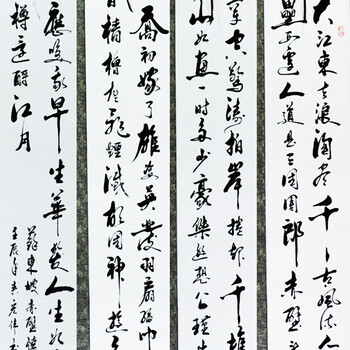 大江東去浪淘盡千古風流人
壘西邊人道是三國周郎赤壁
穿空驚濤拍岸捲起千堆
山如畫一時多少豪傑遙想公瑾
喬初嫁了雄姿英發羽扇綸巾
檣櫓灰飛煙滅故國神遊
應笑我早生華髮人生如
樽還酹江月
蘇東坡赤壁懷
壬辰年